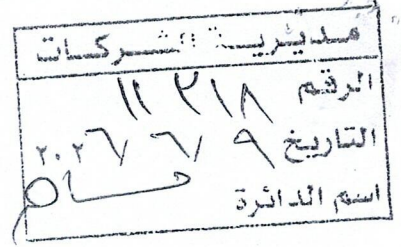 مديرية الشركات
الرقم ١١٣١٨
التاريخ ٩ / ٦ / ٢٠٢٦
اسم الدائرة